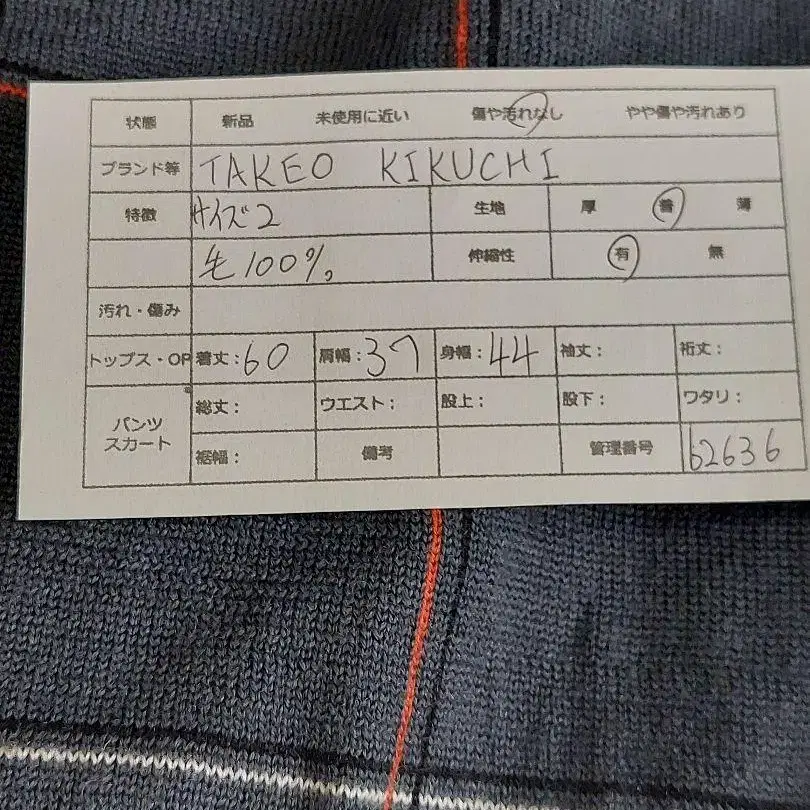 状態 新品 未使用に近い 傷や汚れなし やや傷や汚れあり
ブランド等 TAKEO KIKUCHI
特徴 サイズ2 生地 厚 普 薄
毛100% 伸縮性 有 無
汚れ・傷み
トップス・OP 着丈:60 肩幅:37 身幅:44 袖丈: 裄丈:
パンツ スカート 総丈: ウエスト: 股上: 股下: ワタリ:
裾幅: 備考 管理番号 62636